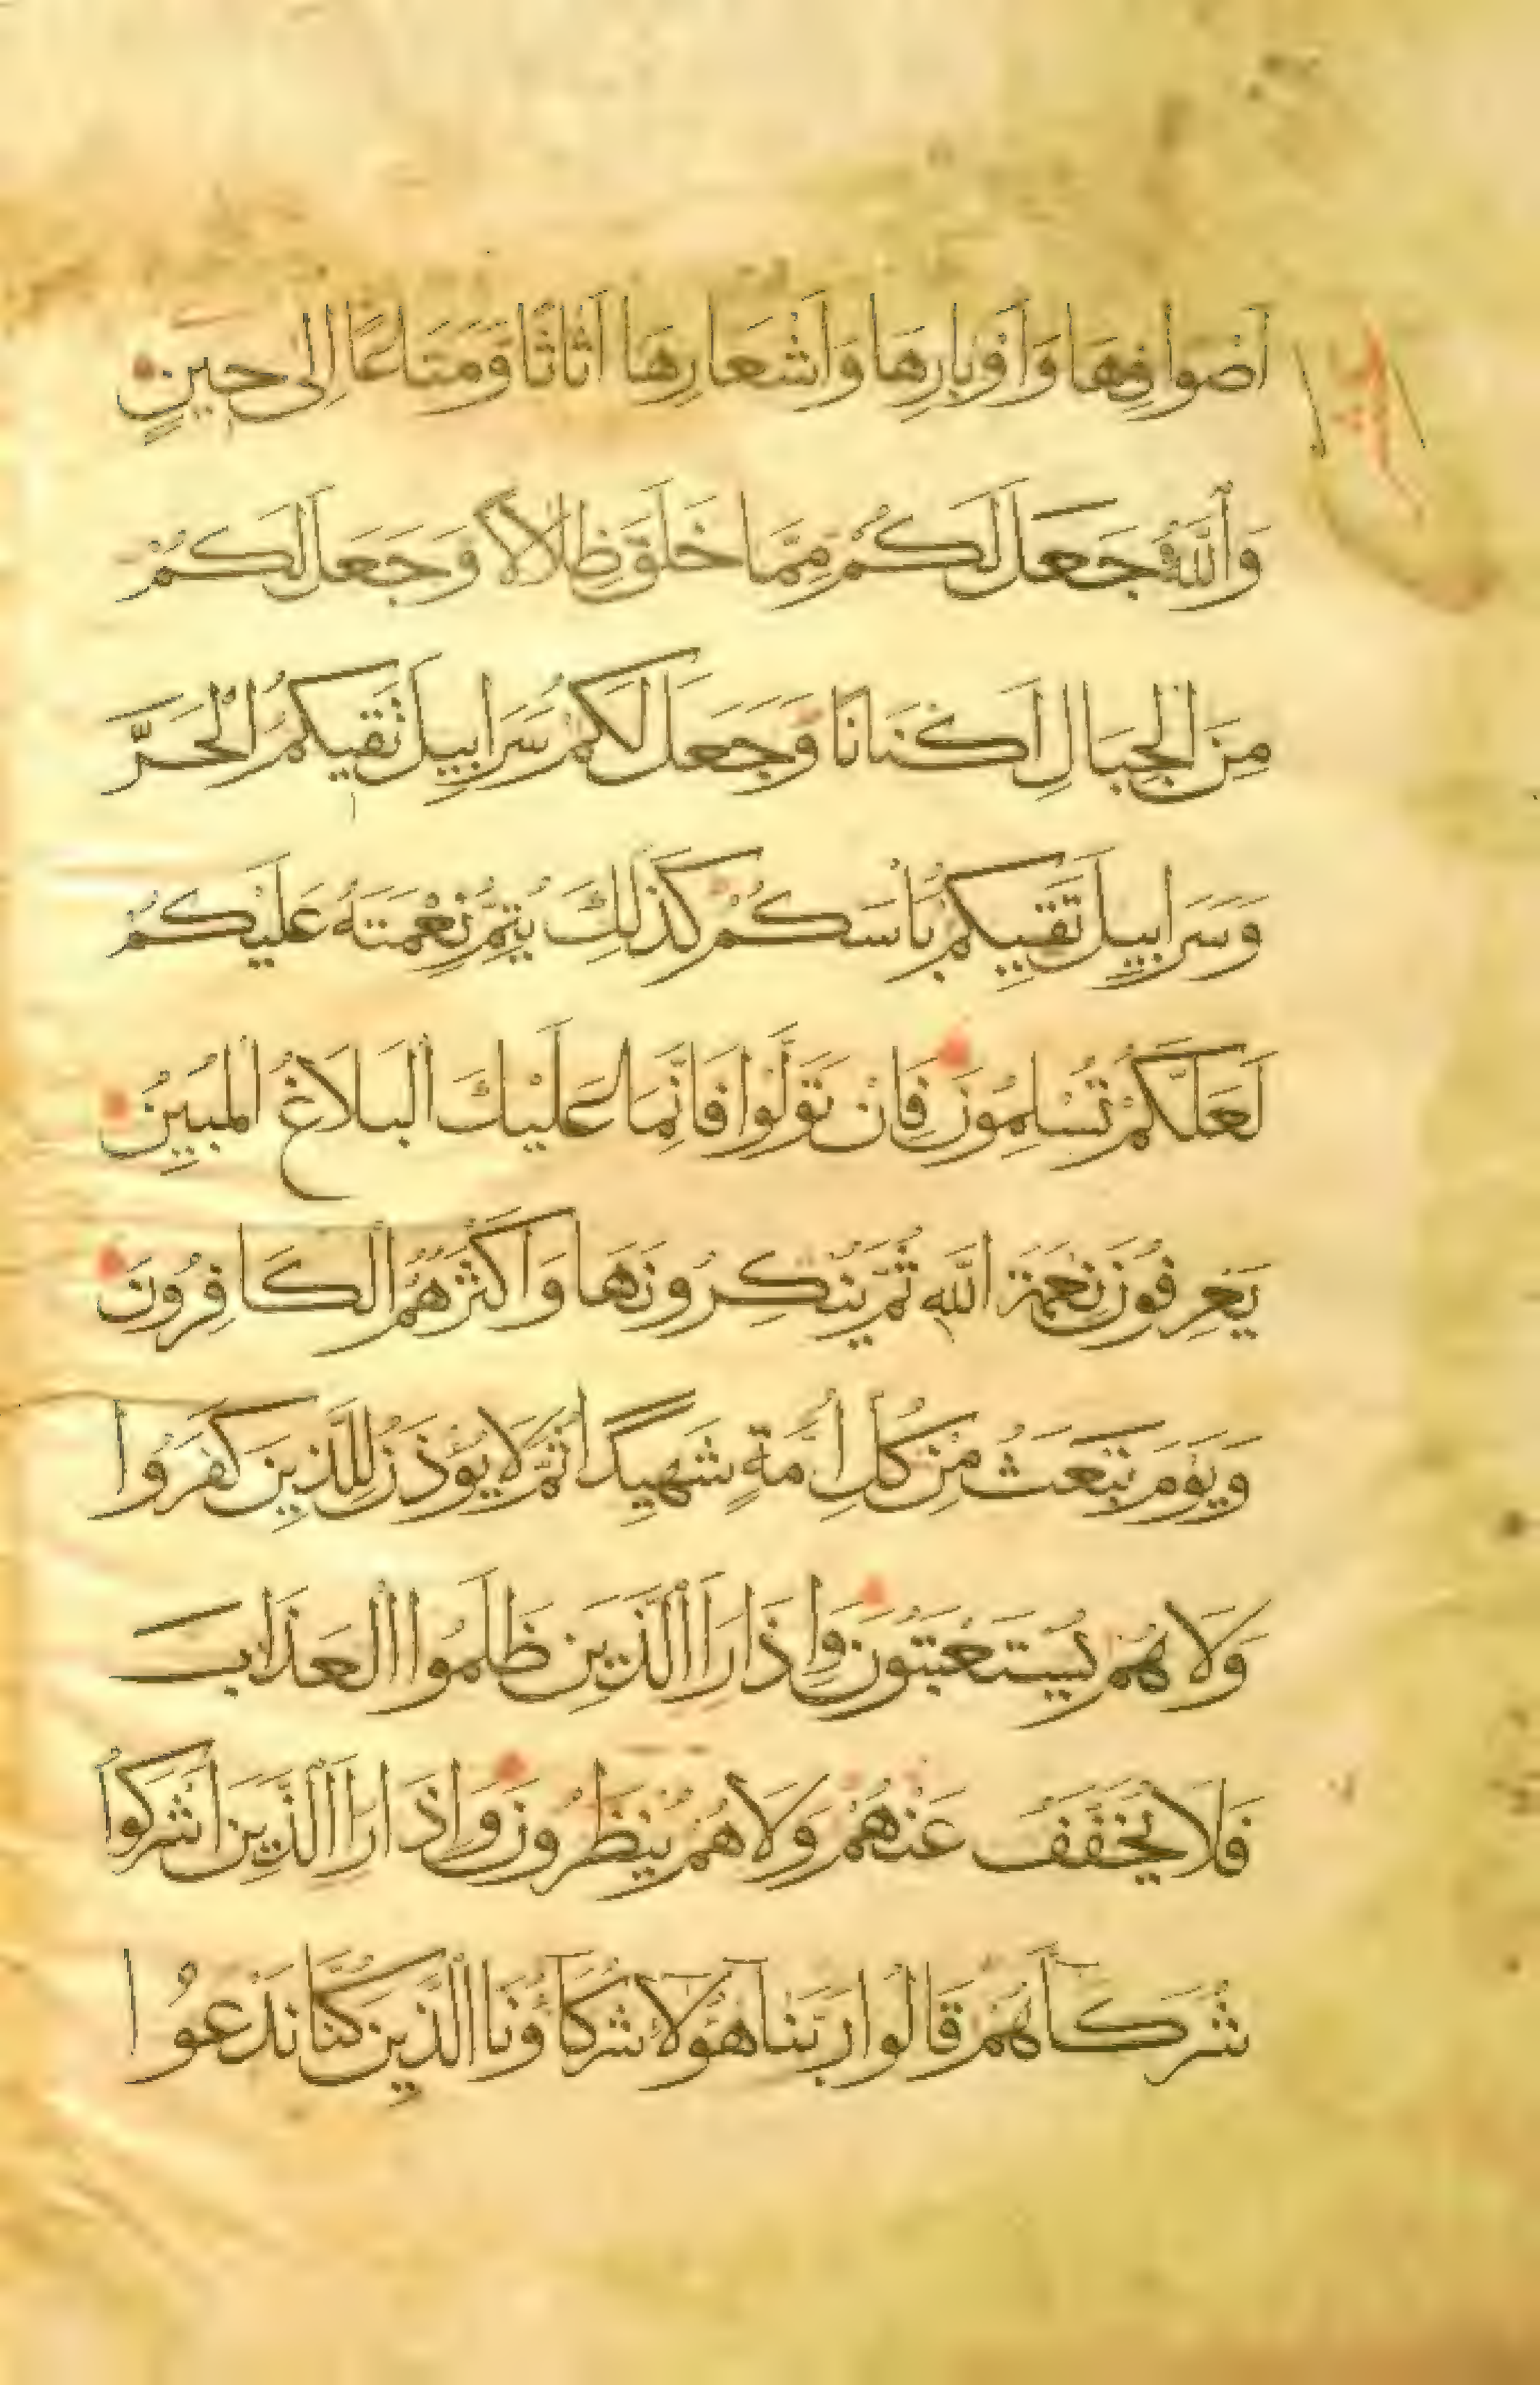 اَصْوَافِهَا وَاَوْبَارِهَا وَاَشْعَارِهَا اَثَاثًا وَمَتَاعًا اِلٰى حِينٍ
وَٱللّٰهُ جَعَلَ لَكُمْ مِمَّا خَلَقَ ظِلَالًا وَجَعَلَ لَكُمْ
مِنَ الْجِبَالِ اَكْنَانًا وَجَعَلَ لَكُمْ سَرَابِيلَ تَقِيكُمُ الْحَرَّ
وَسَرَابِيلَ تَقِيكُمْ بَأْسَكُمْ كَذٰلِكَ يُتِمُّ نِعْمَتَهُ عَلَيْكُمْ
لَعَلَّكُمْ تُسْلِمُونَ فَاِنْ تَوَلَّوْا فَاِنَّمَا عَلَيْكَ الْبَلَاغُ الْمُبِينُ
يَعْرِفُونَ نِعْمَةَ اللّٰهِ ثُمَّ يُنْكِرُونَهَا وَاَكْثَرُهُمُ الْكَافِرُونَ
وَيَوْمَ نَبْعَثُ مِنْ كُلِّ اُمَّةٍ شَهِيدًا ثُمَّ لَا يُؤْذَنُ لِلَّذِينَ كَفَرُوا
وَلَا هُمْ يُسْتَعْتَبُونَ وَاِذَا رَاَ الَّذِينَ ظَلَمُوا الْعَذَابَ
فَلَا يُخَفَّفُ عَنْهُمْ وَلَا هُمْ يُنْظَرُونَ وَاِذَا رَاَ الَّذِينَ اَشْرَكُوا
شُرَكَآَهُمْ قَالُوا رَبَّنَا هٰٓؤُلَآءِ شُرَكَآؤُنَا الَّذِينَ كُنَّا نَدْعُوا